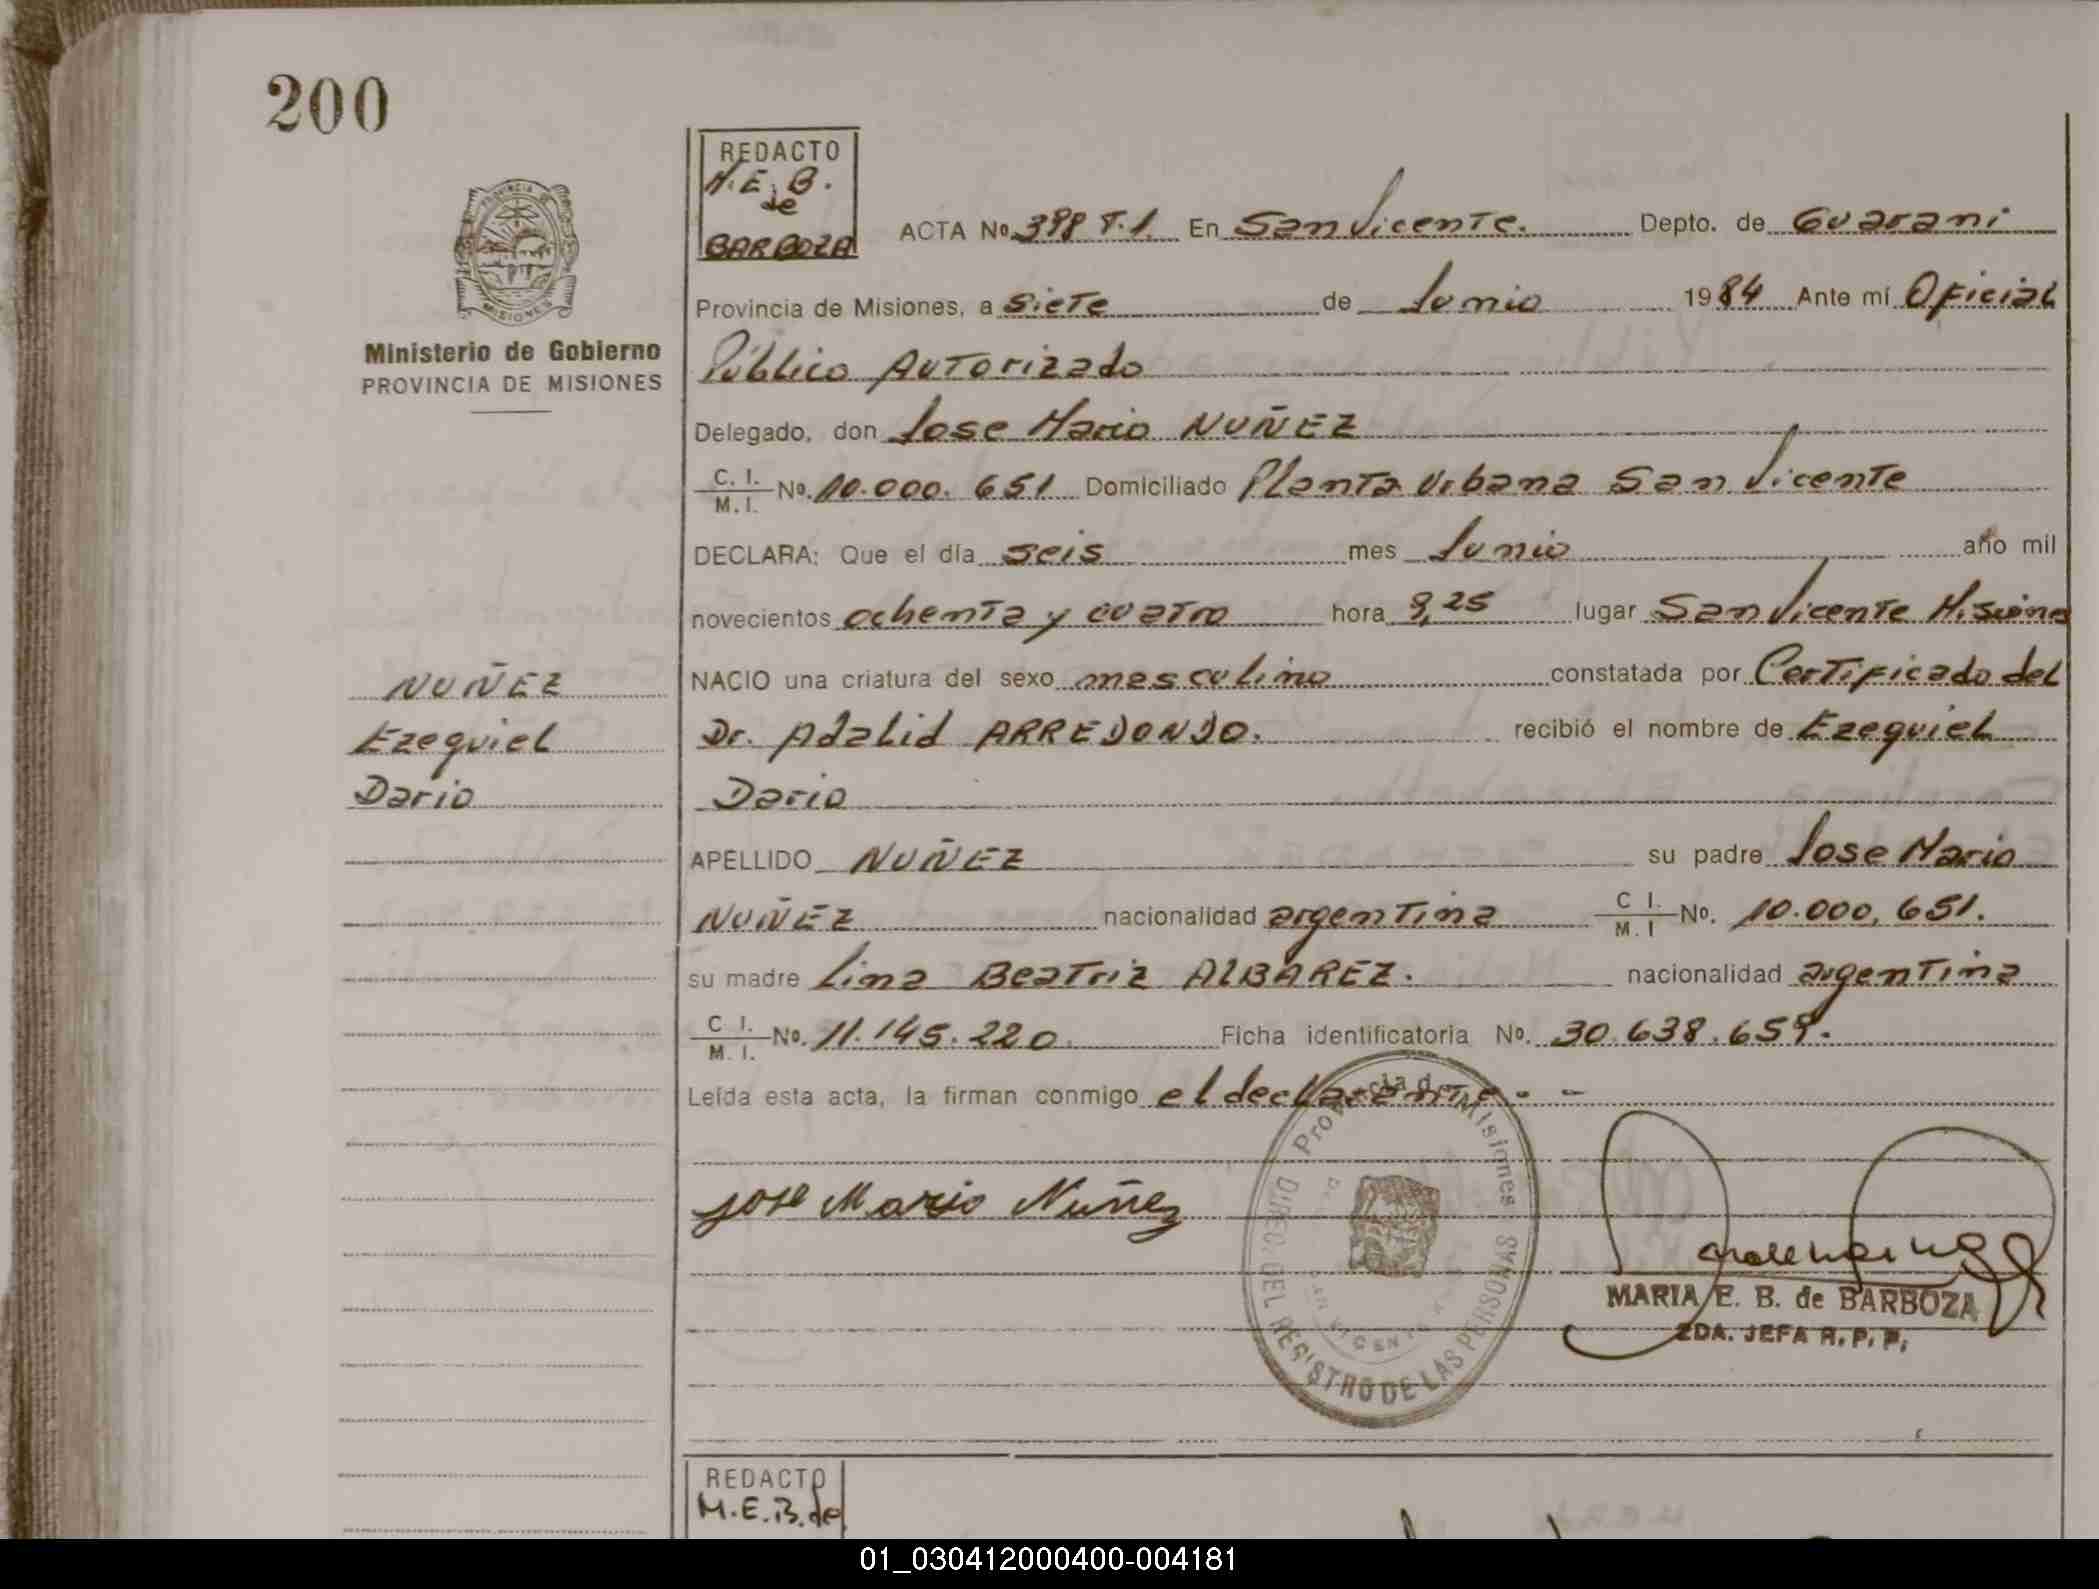 200
PROVINCIA DE
MISIONES
Ministerio de Gobierno
PROVINCIA DE MISIONES
REDACTO
M.E.B.
de
BARBOZA
ACTA No. 398 T.1. En San Vicente. Depto. de Guarani
Provincia de Misiones, a siete de Junio 1984 Ante mí Oficial
Público Autorizado
Delegado, don Jose Mario NUÑEZ
C. I. / M. I. No. 10.000.651 Domiciliado Planta Urbana San Vicente
DECLARA: Que el día seis mes Junio año mil
novecientos ochenta y cuatro hora 9,25 lugar San Vicente Misiones
NACIO una criatura del sexo masculino constatada por Certificado del
Dr. Adalid ARREDONDO. recibió el nombre de Ezequiel
Dario
APELLIDO NUÑEZ su padre Jose Mario
NUÑEZ nacionalidad argentina C I. / M. I No. 10.000,651.
su madre Lina Beatriz ALBAREZ. nacionalidad argentina
C I. / M. I. No. 11.145.220. Ficha identificatoria No. 30.638.659.
Leída esta acta, la firman conmigo el declarante. -
NUÑEZ
Ezequiel
Dario
Jose Mario Nuñez
Provincia de Misiones
DIREC. DEL REGISTRO DE LAS PERSONAS
SAN VICENTE
MARIA E. B. de BARBOZA
2DA. JEFA R. P. P.
REDACTO
M.E.B. de
01_030412000400-004181